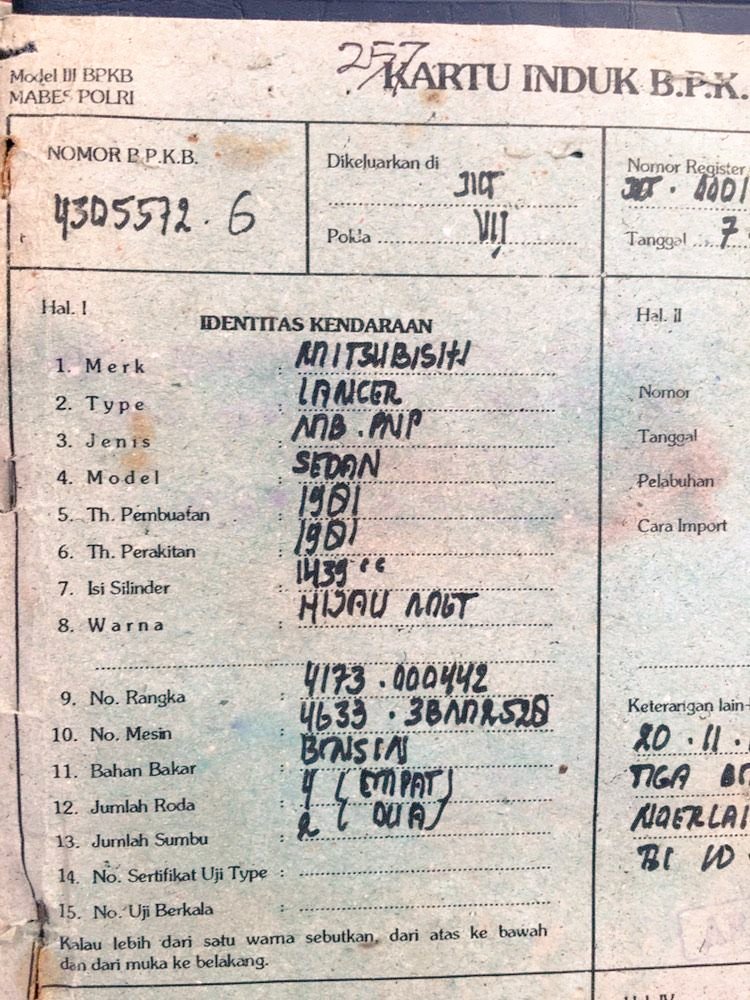 257
Model III BPKB
MABES POLRI
KARTU INDUK B.P.K.
NOMOR B.P.K.B.
4305572 . 6
Dikeluarkan di JKT
Polda VII
Nomor Register
JKT . 0001
Tanggal 7
Hal. I
IDENTITAS KENDARAAN
1. Merk : MITSUBISHI
2. Type : LANCER
3. Jenis : MB . PNP
4. Model : SEDAN
5. Th. Pembuatan : 1981
6. Th. Perakitan : 1981
7. Isi Silinder : 1439 cc
8. Warna : HIJAU
9. No. Rangka : 4173 . 000442
10. No. Mesin : 4G33 .
11. Bahan Bakar : BENSIN
12. Jumlah Roda : 4 ( EMPAT )
13. Jumlah Sumbu : 2 ( DUA )
14. No. Sertifikat Uji Type :
15. No. Uji Berkala :
Kalau lebih dari satu warna sebutkan, dari atas ke bawah
dan dari muka ke belakang.
Hal. II
Nomor
Tanggal
Pelabuhan
Cara Import
Keterangan lain-
20 . 11 .
TIGA